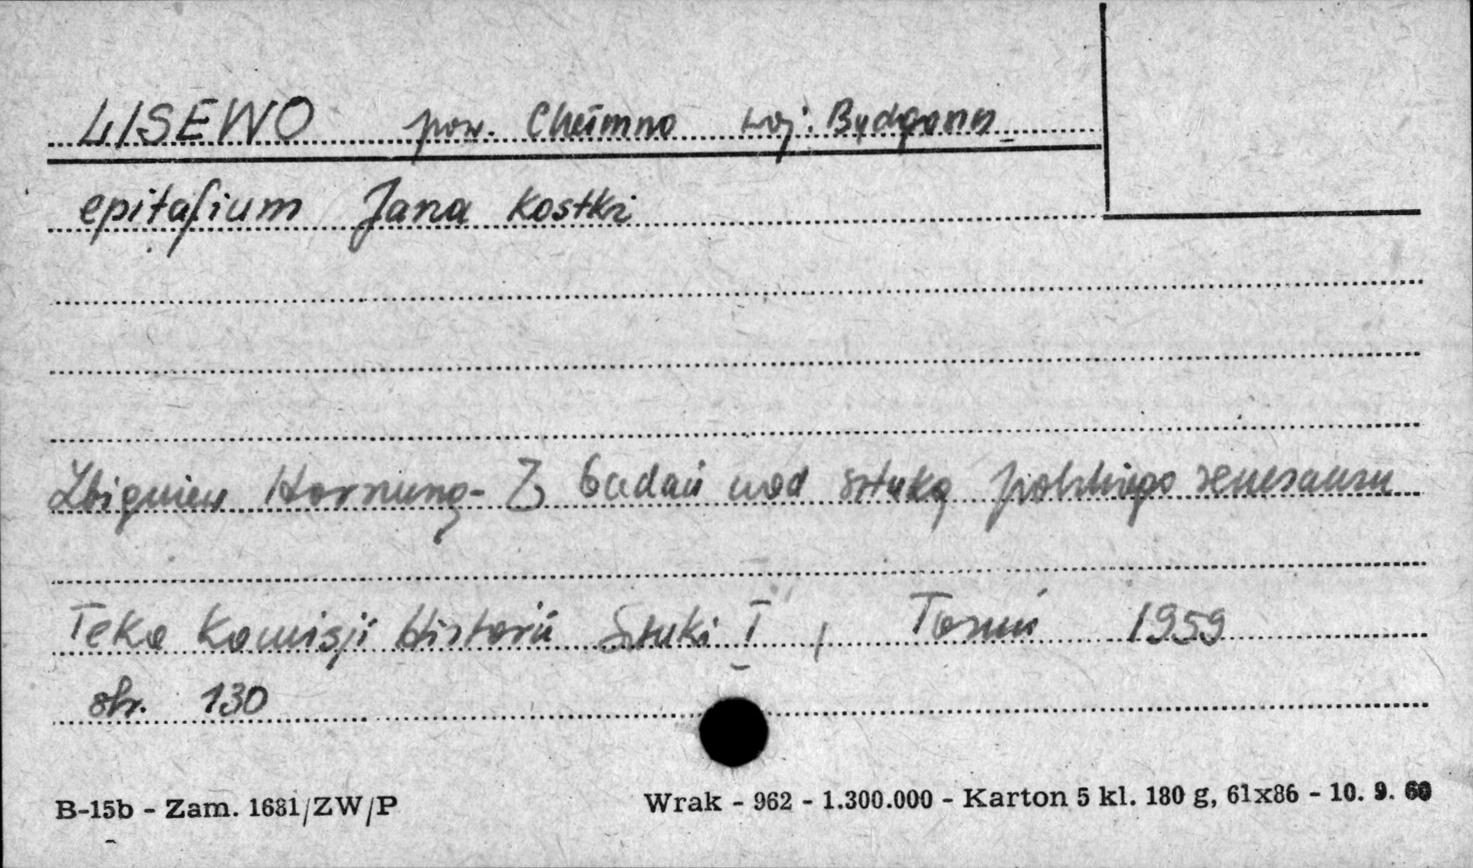 LISEWO pow. Chełmno woj. Bydgoszcz
epitafium Jana Kostki
Zbigniew Hornung - Z badań nad sztuką polskiego renesansu
Teka Komisji Historii Sztuki I, Toruń 1959
str. 130
B-15b - Zam. 1681/ZW/P Wrak - 962 - 1.300.000 - Karton 5 kl. 180 g, 61x86 - 10. 9. 60